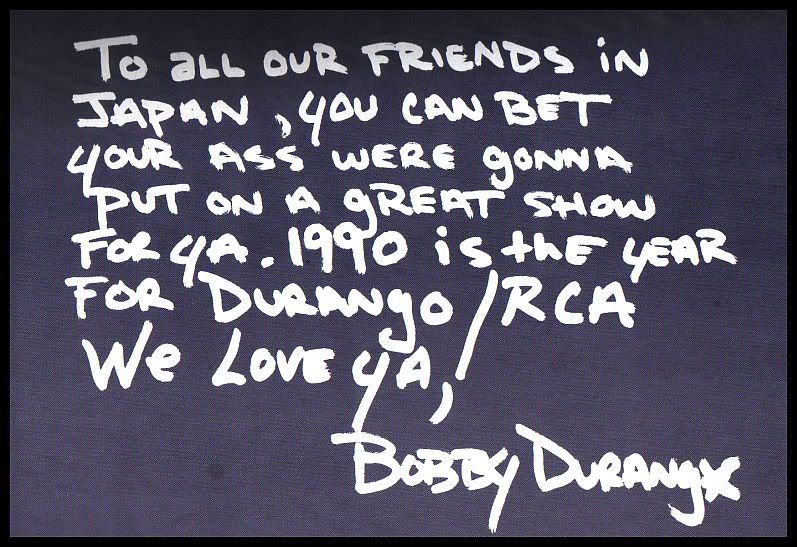 To all our friends in
Japan, you can bet
your ass were gonna
put on a great show
for ya. 1990 is the year
for Durango/RCA
We love ya,
Bobby Durango